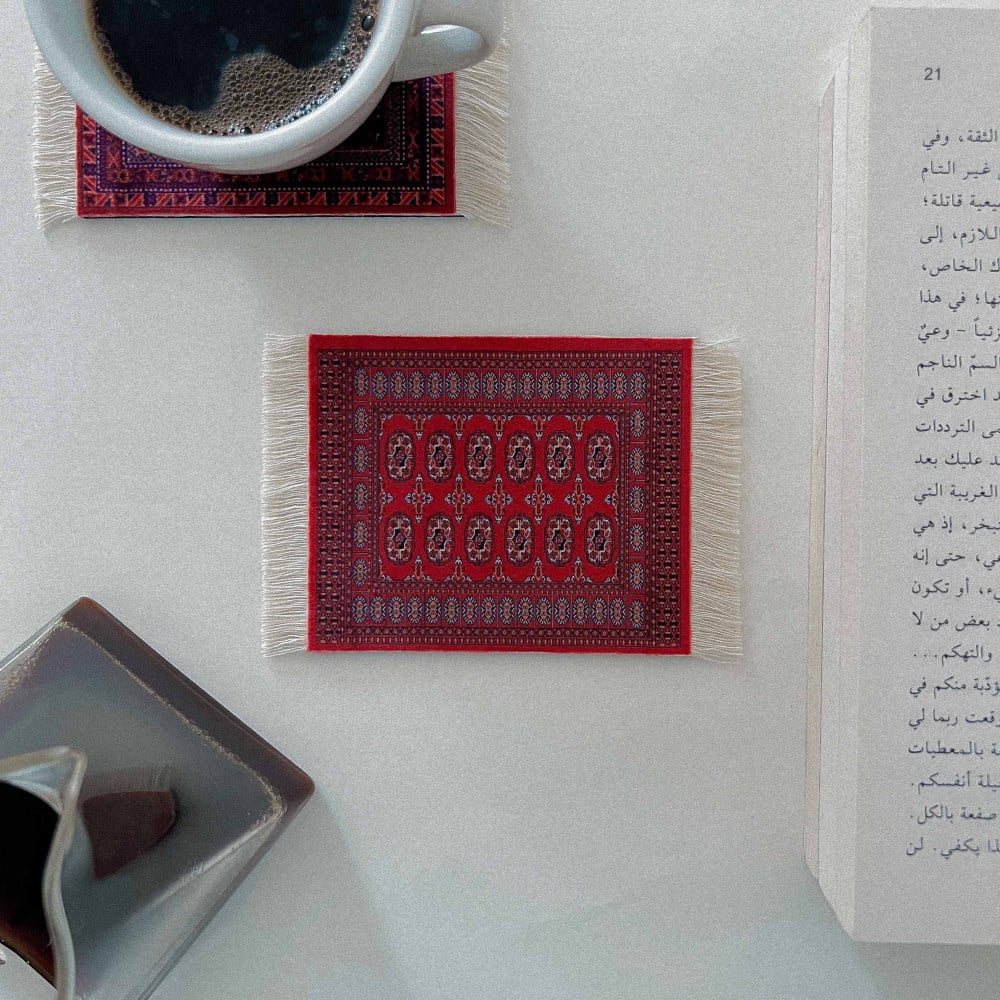 21
الثقة، وفي
غير التام
قاتلة؛
اللازم، إلى
الخاص،
في هذا
– وعيٌ
السمّ الناجم
اخترق في
الترددات
عليك بعد
الغريبة التي
إذ هي
حتى إنه
أو تكون
بعض من لا
والتهكم...
منكم في
ربما لي
بالمعطيات
أنفسكم.
صفعة بالكل.
يكفي. لن